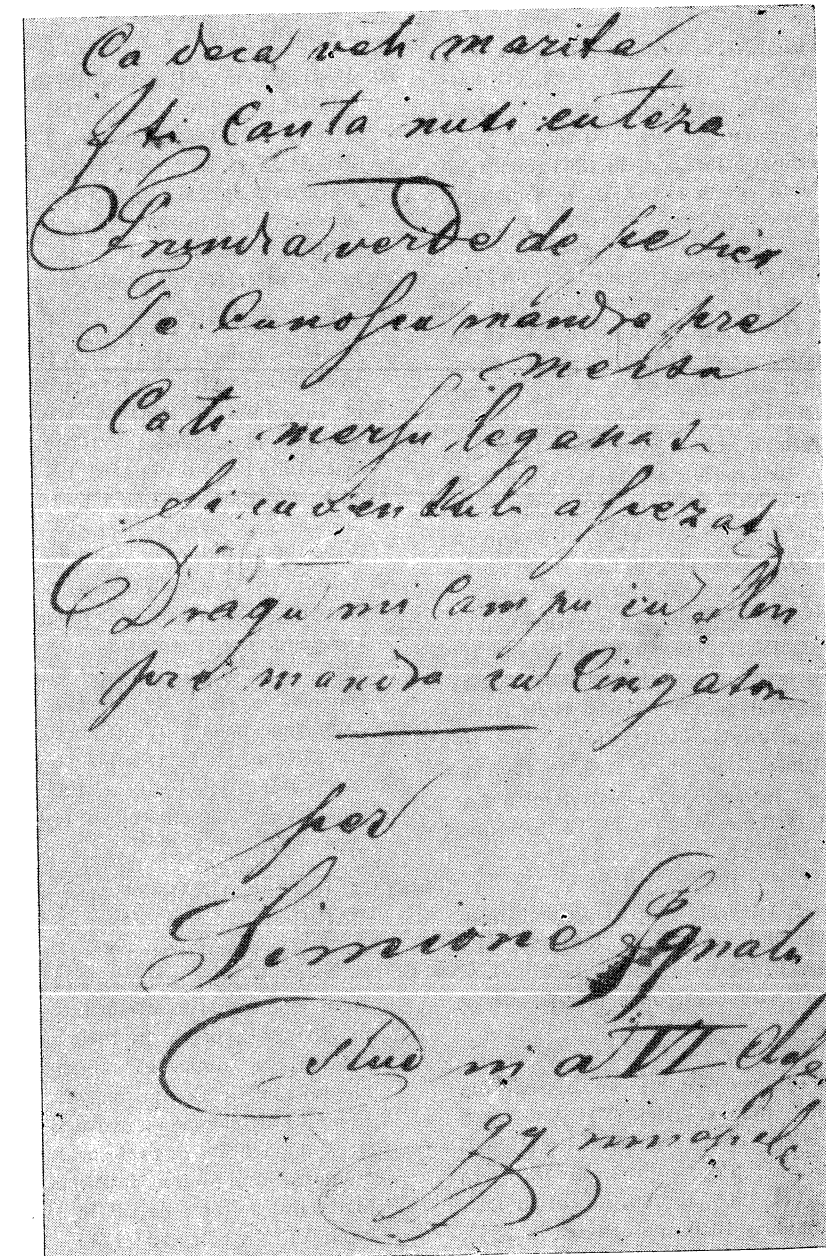 Ca deca veti marita
Iti canta nuti cuteza
Frundia verde de pe
Te cunoscu mandra pre
mersa
Ca ti mersu leganat
Si cuventul asiezat
Dragu mi campu cu
pre mandra cu
per
Simeone Ignatu
stud in a VI clase